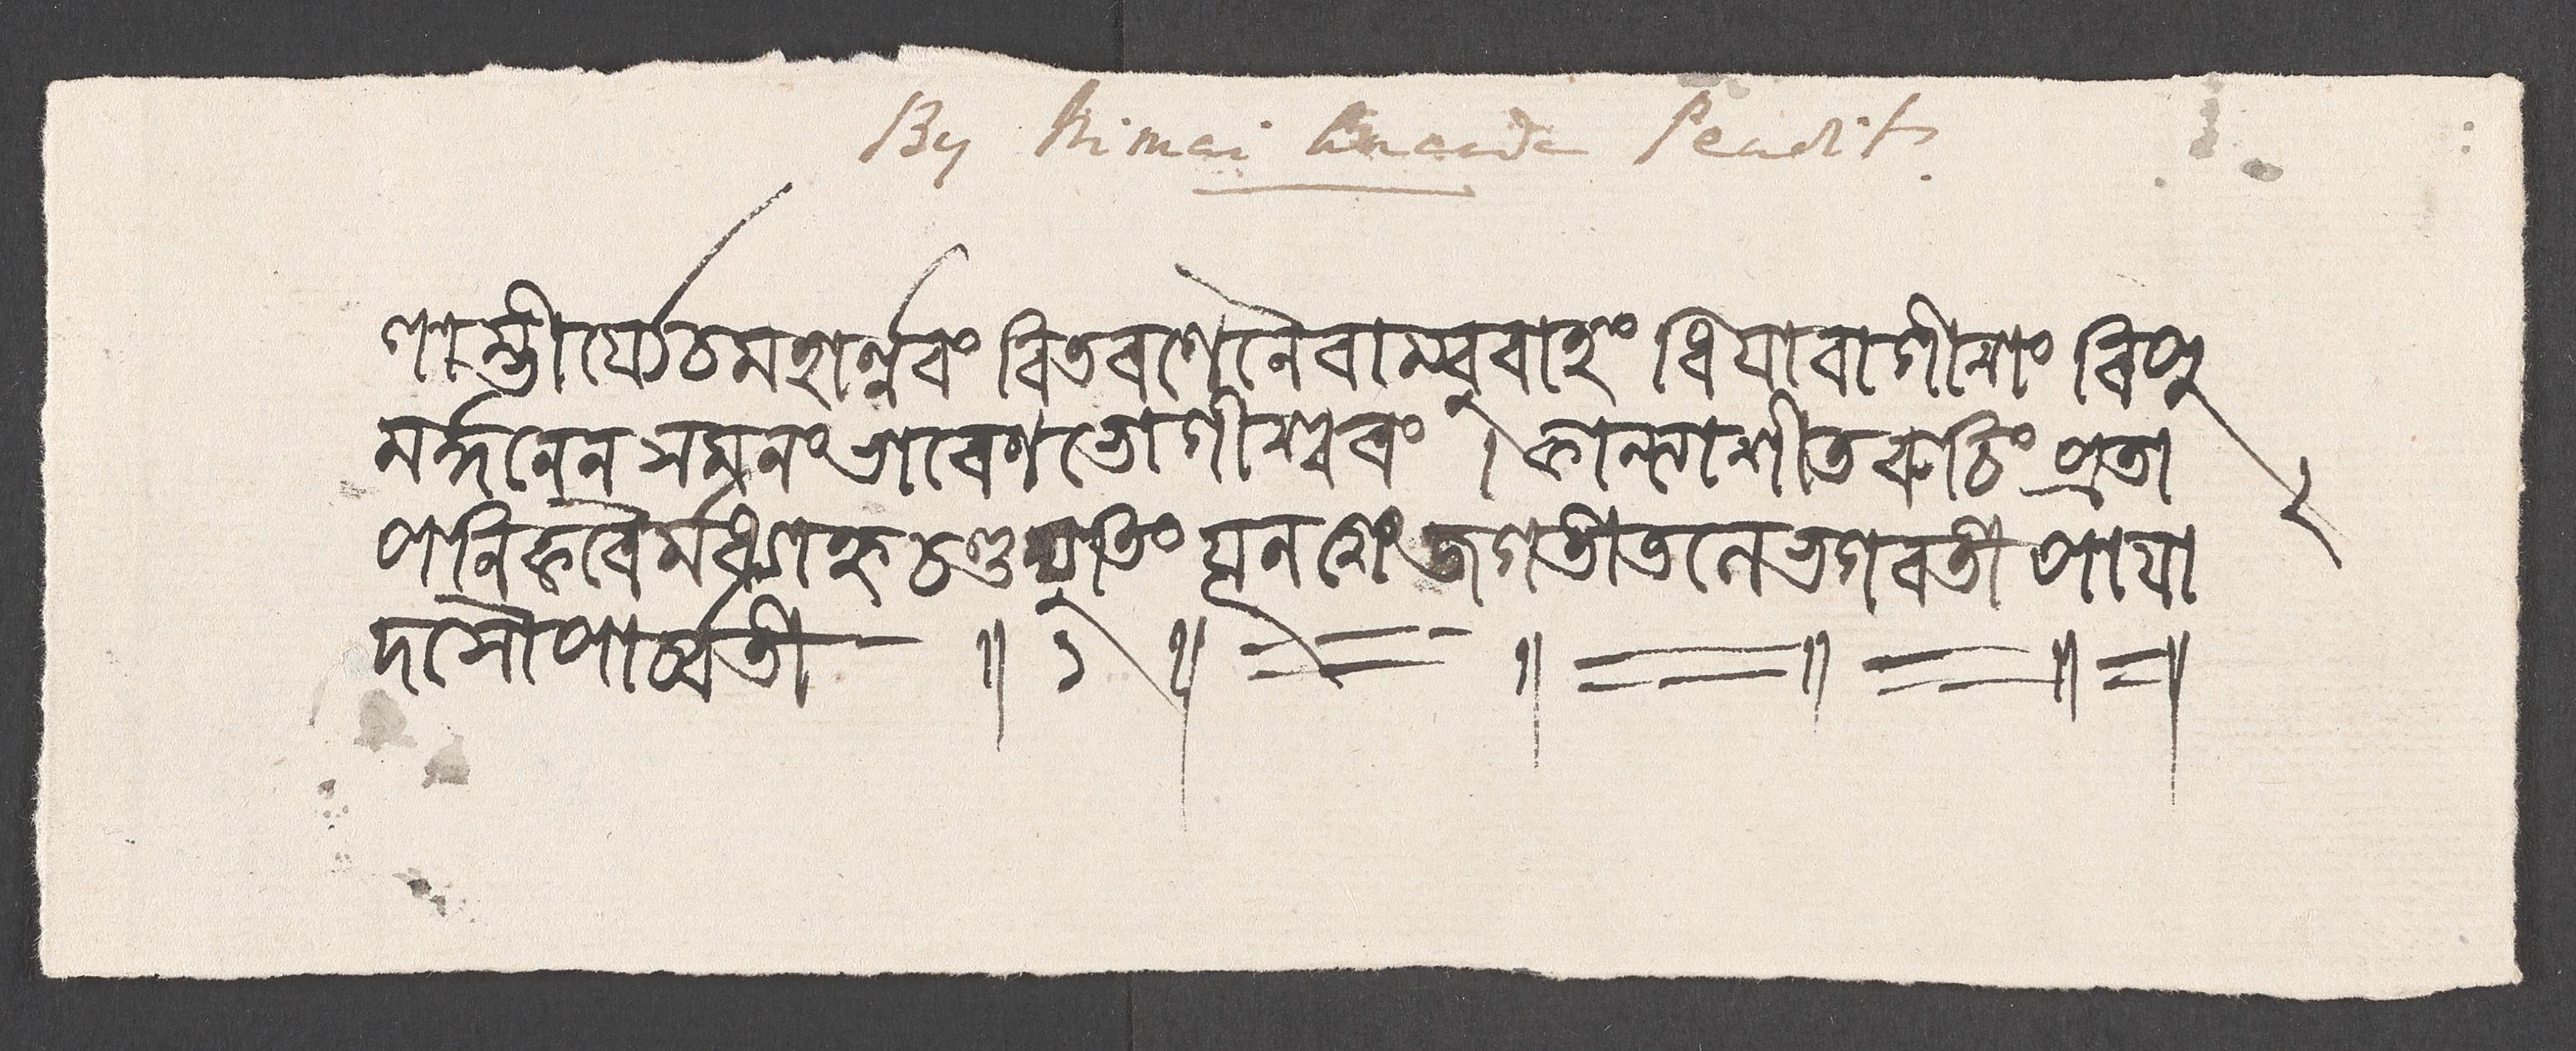 By Nimai Ananda Pendit.
গাম্ভীর্য্যেঠমহার্ন্নবং বিতরণেনৈবাম্বুবাহং ধিযাবাগীশং রিপু
মর্দ্দনেন সমনং ভারেণ ভোগীশ্বরং । কান্ত্যাশীতরুচিং প্রতা
পনিকরৈর্মধ্যাহ্নচণ্ডদ্যুতিং জগতীতলে ভগবতী পাযা
দসৌপার্ব্বতী ॥ ১ ॥ == ॥ == ॥ == ॥ = ॥